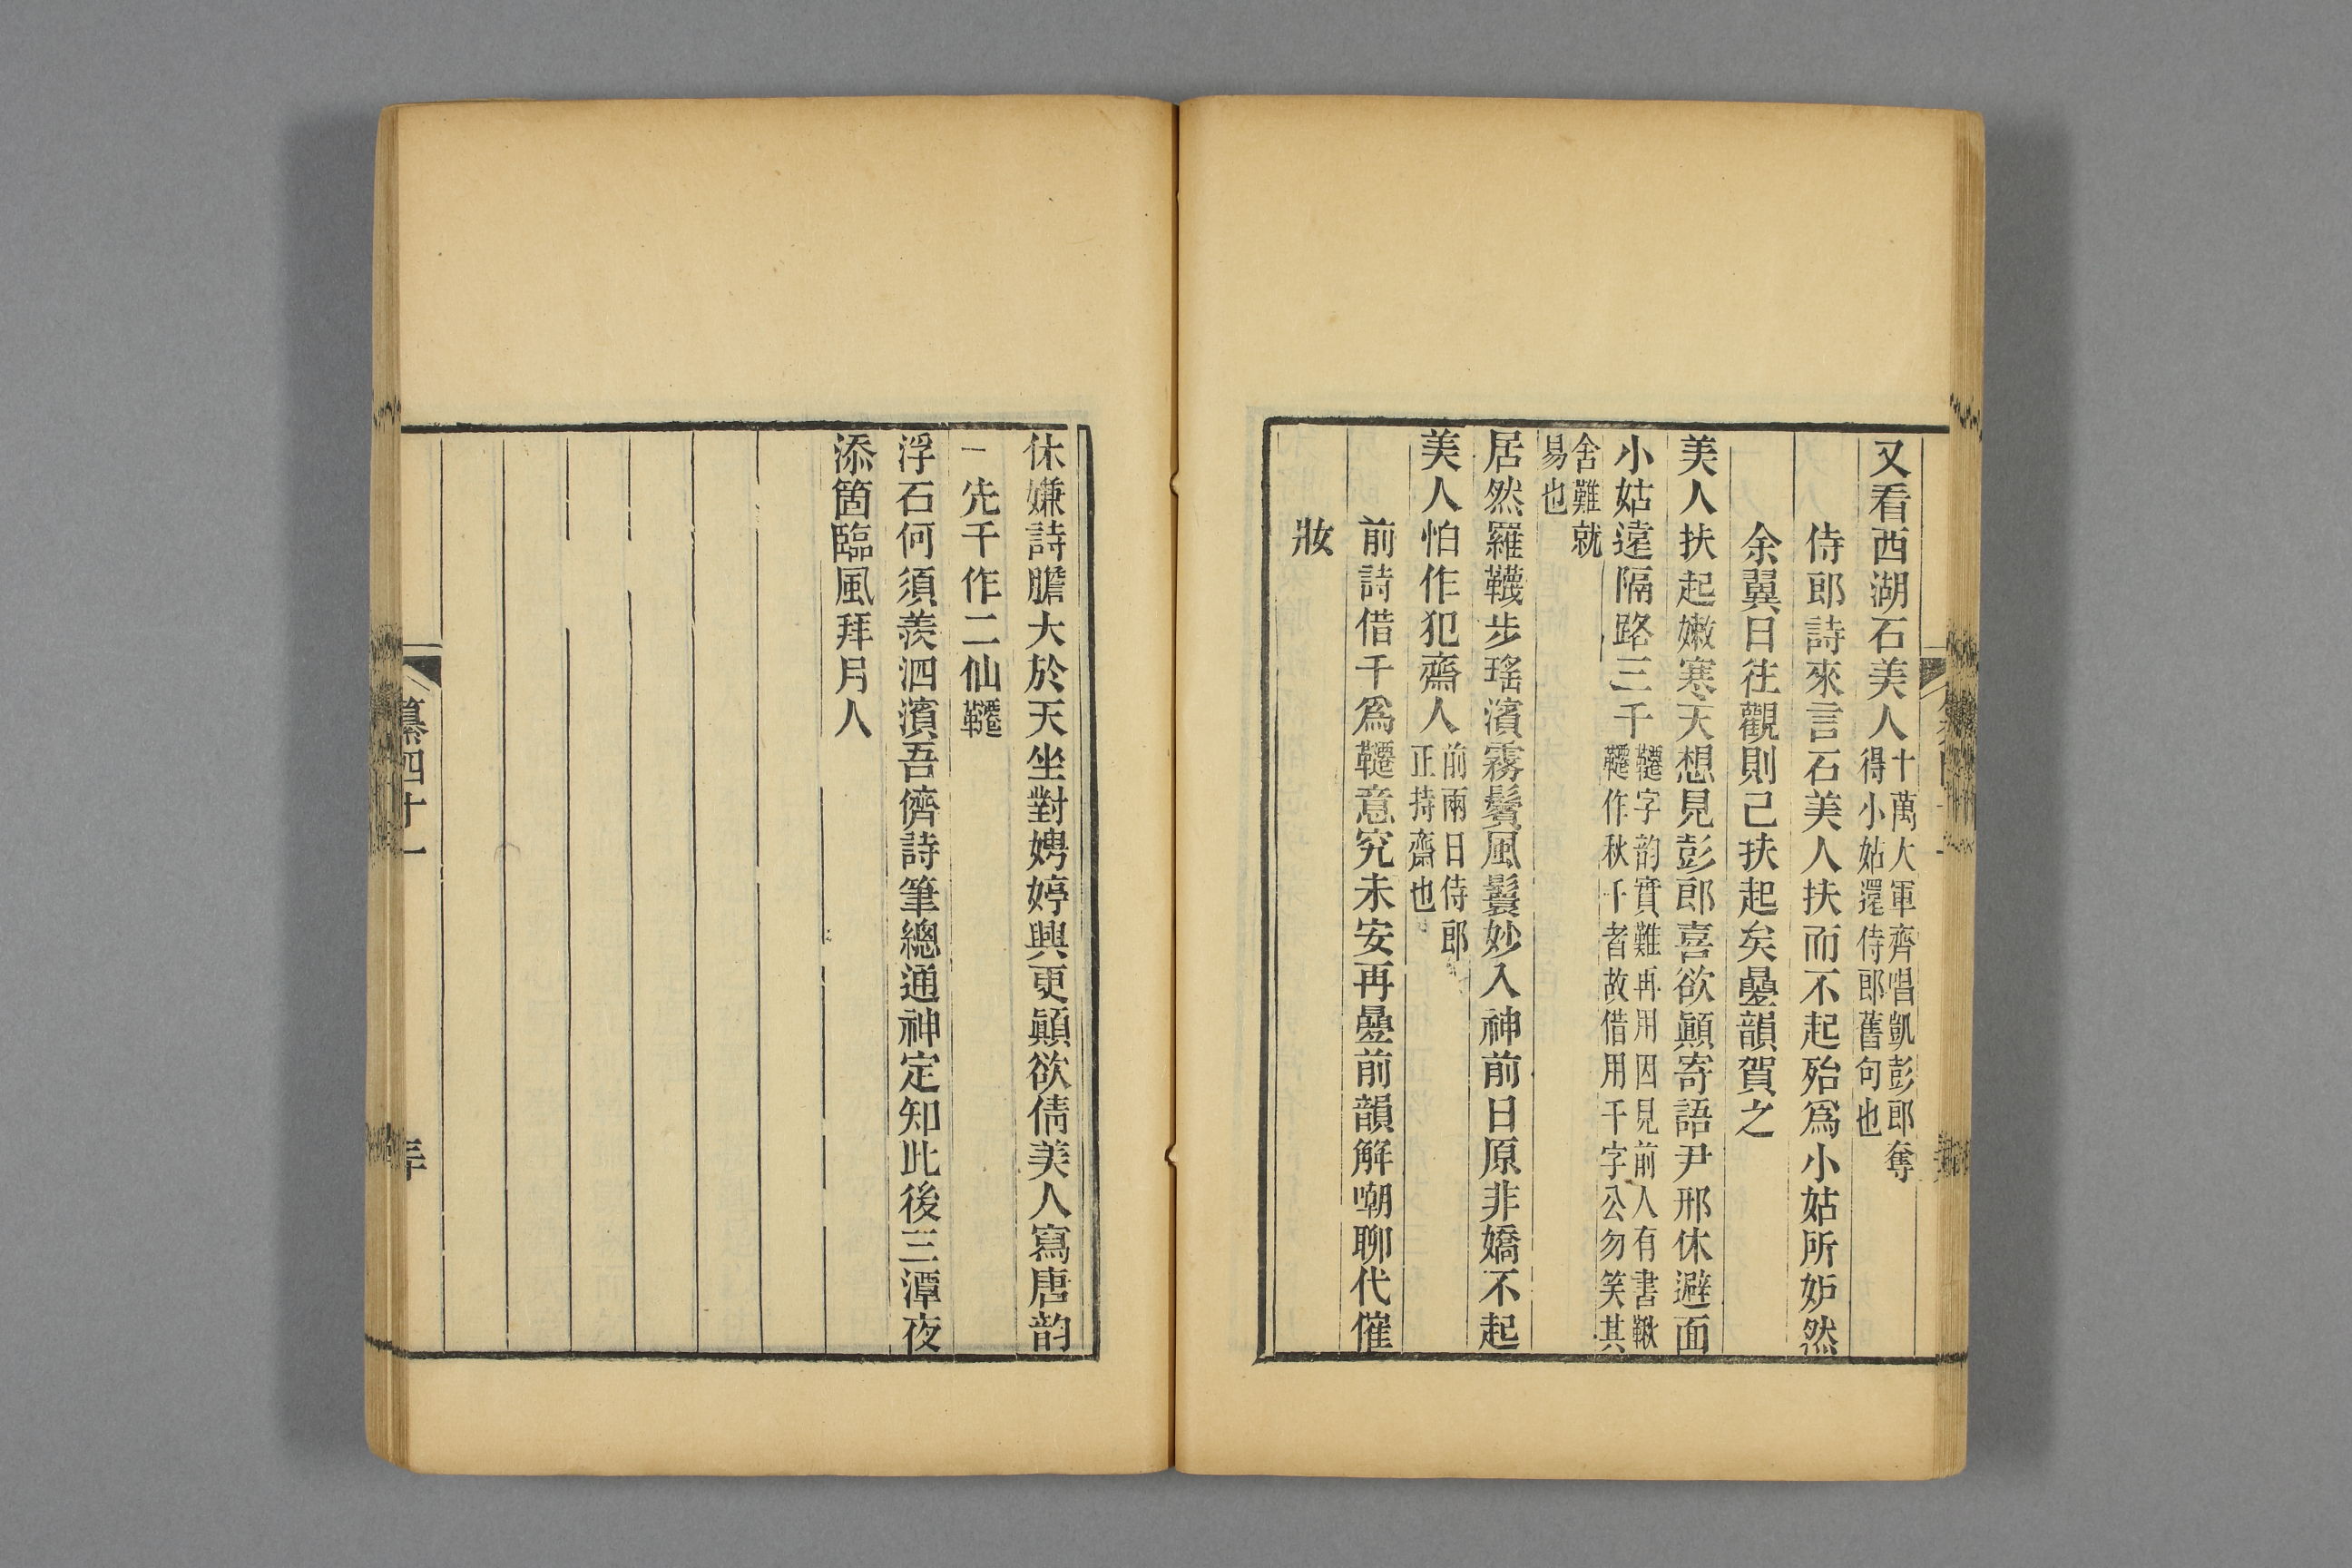 又看西湖石美人十萬大軍齊唱凱彭郎奪得小姑還侍郎舊句也
侍郎詩來言石美人扶而不起殆爲小姑所妒然
余翼日往觀則已扶起矣疊韻賀之
美人扶起嫩寒天想見彭郎喜欲顚寄語尹邢休避面
小姑遠隔路三千韆字韵實難再用因見前人有書鞦韆作秋千者故借用千字公勿笑其
舍難就易也
居然羅韈步瑤濱霧鬢風鬟妙入神前日原非嬌不起
美人怕作犯齋人前兩日侍郎正持齋也
前詩借千爲韆意究未安再疊前韻解嘲聊代催
妝
休嫌詩膽大於天坐對娉婷興更顚欲倩美人寫唐韵
一先千作二仙韆
浮石何須羨泗濱吾儕詩筆總通神定知此後三潭夜
添箇臨風拜月人
纂四十一